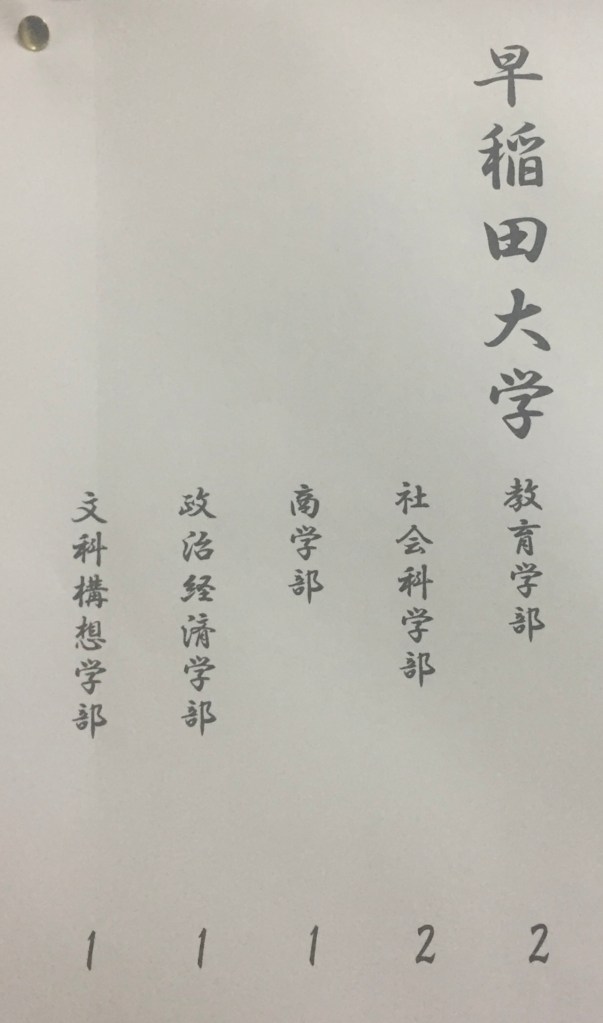 早稲田大学
教育学部 2
社会科学部 2
商学部 1
政治経済学部 1
文科構想学部 1